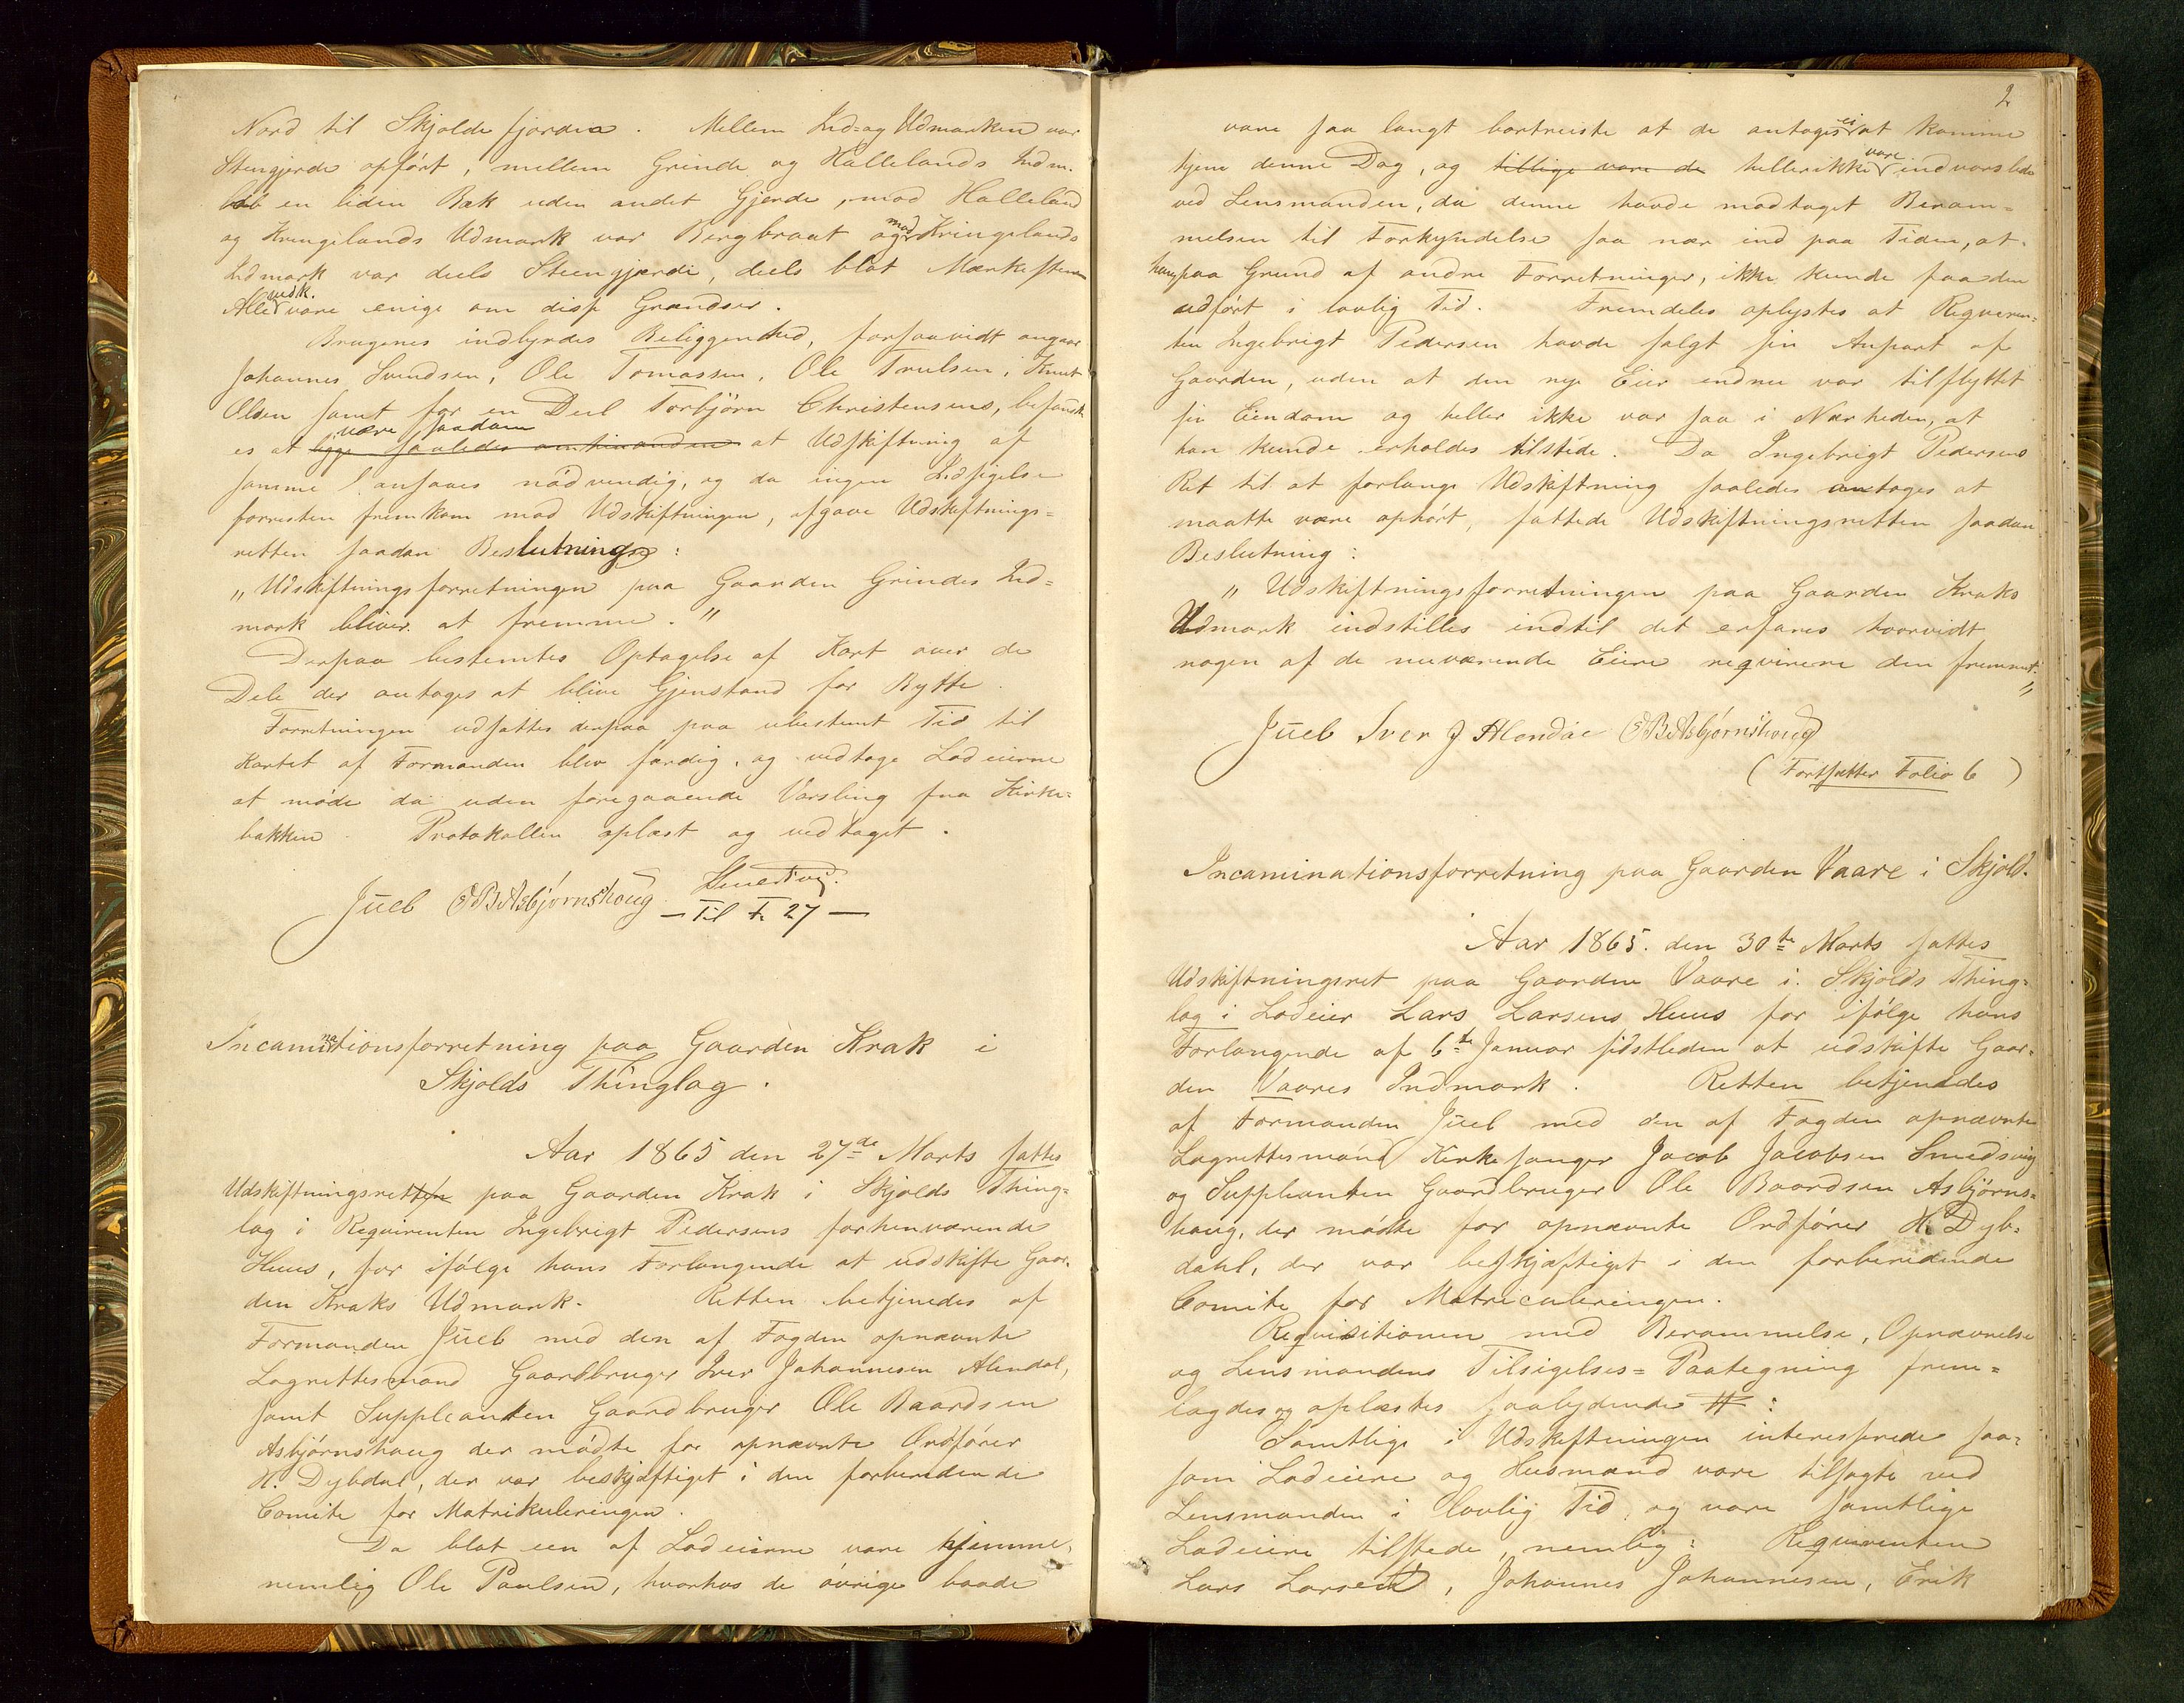 Nord til Skjoldefjorden. Mellem Ind-og Udmarken var
Stengjerde opført, mellem Grinde og Hallelands Indm.
løb en liden Bæk uden andet Gjerde, mod Halleland
og Kringelands Udmark var Bergbraat og mod Kringelands
Indmark var deels Steengjærde, deels blot Mærkestene
Alle vedk. vare enige om disse Grændser.
Brugenes indbyrdes Beliggenhed, forsaavidt angaar
Johannes Svendsen, Ole Tomassen, Ole Trulsen, Knut
Olsen samt for en Deel Torbjörn Christensens, befandt-
es at ligge saaledes være saadan at Udskiftning af
samme ansaaes nödvendig, og da ingen Indsigelse
forresten fremkom mod Udskiftningen, afgave Udskiftnings=
retten saadan Beslutning:
„Udskiftningsforretningen paa Gaarden Grindes Ind=
mark bliver at fremme."
Derpaa bestemtes Optagelse af Kart over de
Dele der antages at blive Gjenstand for Bytte.
Forretningen udsattes derpaa paa ubestemt Tid til
Kartet af Formanden blev færdig, og vedtoge Lodeierne
at møde da uden foregaaende Varsling fra Kirke=
bakken. Protokollen oplæst og vedtaget.
Juel OBAsbjørnshoug Smedsvig.
— Til F. 27 —
Incaminationsforretning paa Gaarden Krak i
Skjolds Thinglag.
Aar 1865 den 27de Marts sattes
Udskiftningsretten paa Gaarden Krak i Skjolds Thing=
lag i Reqvirenten Ingebrigt Pedersens forhenværende
Huus, for ifølge hans Forlangende at udskifte Gaar-
den Kraks Udmark. Retten betjenedes af
Formanden Juel med den af Fogden opnævnte
Lagrettesmand Gaardbruger Iver Johannesen Alendal,
samt Suppleanten Gaardbruger Ole Baardsen
Asbjørnshaug der mødte for opnævnte Ordfører
H. Dybdal, der var beskjæftiget i den forberedende
Comite for Matrikuleringen.
Da blot een af Lodeierne vare hjemme,
nemlig Ole Paulsen, hvorhos de øvrige baade
2
vare saa langt bortreiste at de antages ei at komme
hjem denne Dag, og tillige vare de hellerikke vare indvarslede
ved Lensmanden, da denne havde modtaget Beram=
melsen til Forkyndelse saa nær ind paa Tiden, at
han paa Grund af andre Forretninger, ikke kunde faa den
udført i lovlig Tid. Fremdeles oplystes at Reqviren=
ten Ingebrigt Pedersen havde solgt sin Anpart af
Gaarden, uden at den nye Eier endnu var tilflyttet
sin Eiendom og heller ikke var saa i Nærheden, at
han kunde erholdes tilstede. Da Ingebrigt Pedersens
Ret til at forlange Udskiftning saaledes antages at
maatte være ophørt, fattede Udskiftningsretten saadan
Beslutning:
„Udskiftningsforretningen paa Gaarden Kraks
Udmark indstilles indtil det erfares hvorvidt
nogen af de nuværende Eiere reqvirere den fremmet."
Juel Iver J Alendal OBAsbjørnshoug
( Fortsætter Folio 6 )
Incaminationsforretning paa Gaarden Vaare i Skjold.
Aar 1865. den 30te Marts sattes
Udskiftningsret paa Gaarden Vaare i Skjolds Thing=
lag i Lodeier Lars Larsens Huus for ifølge hans
Forlangende af 6te Januar sidstleden at udskifte Gaar-
den Vaares Indmark. Retten betjenedes
af Formanden Juel med den af Fogden opnævnte
Lagrettesmand Kirkesanger Jacob Jacobsen Smedsvig
og Suppleanten Gaardbruger Ole Baardsen Asbjørns=
haug, der mødte for opnævnte Ordfører H. Dyb=
dahl, der var beskjæftiget i den forberedende
Comite for Matriculeringen.
Reqvisitionen med Berammelse, Opnævnelse
og Lensmandens Tilsigelses=Paategning frem=
lagdes og oplæstes saalydende #:
Samtlige i Udskiftningen interesserede saa=
som Lodeiere og Husmænd vare tilsagte ved
Lensmanden i lovlig Tid, og vare samtlige
Lodeiere tilstede, nemlig: Reqvirenten
Lars Larsen, Johannes Johannesen, Erik